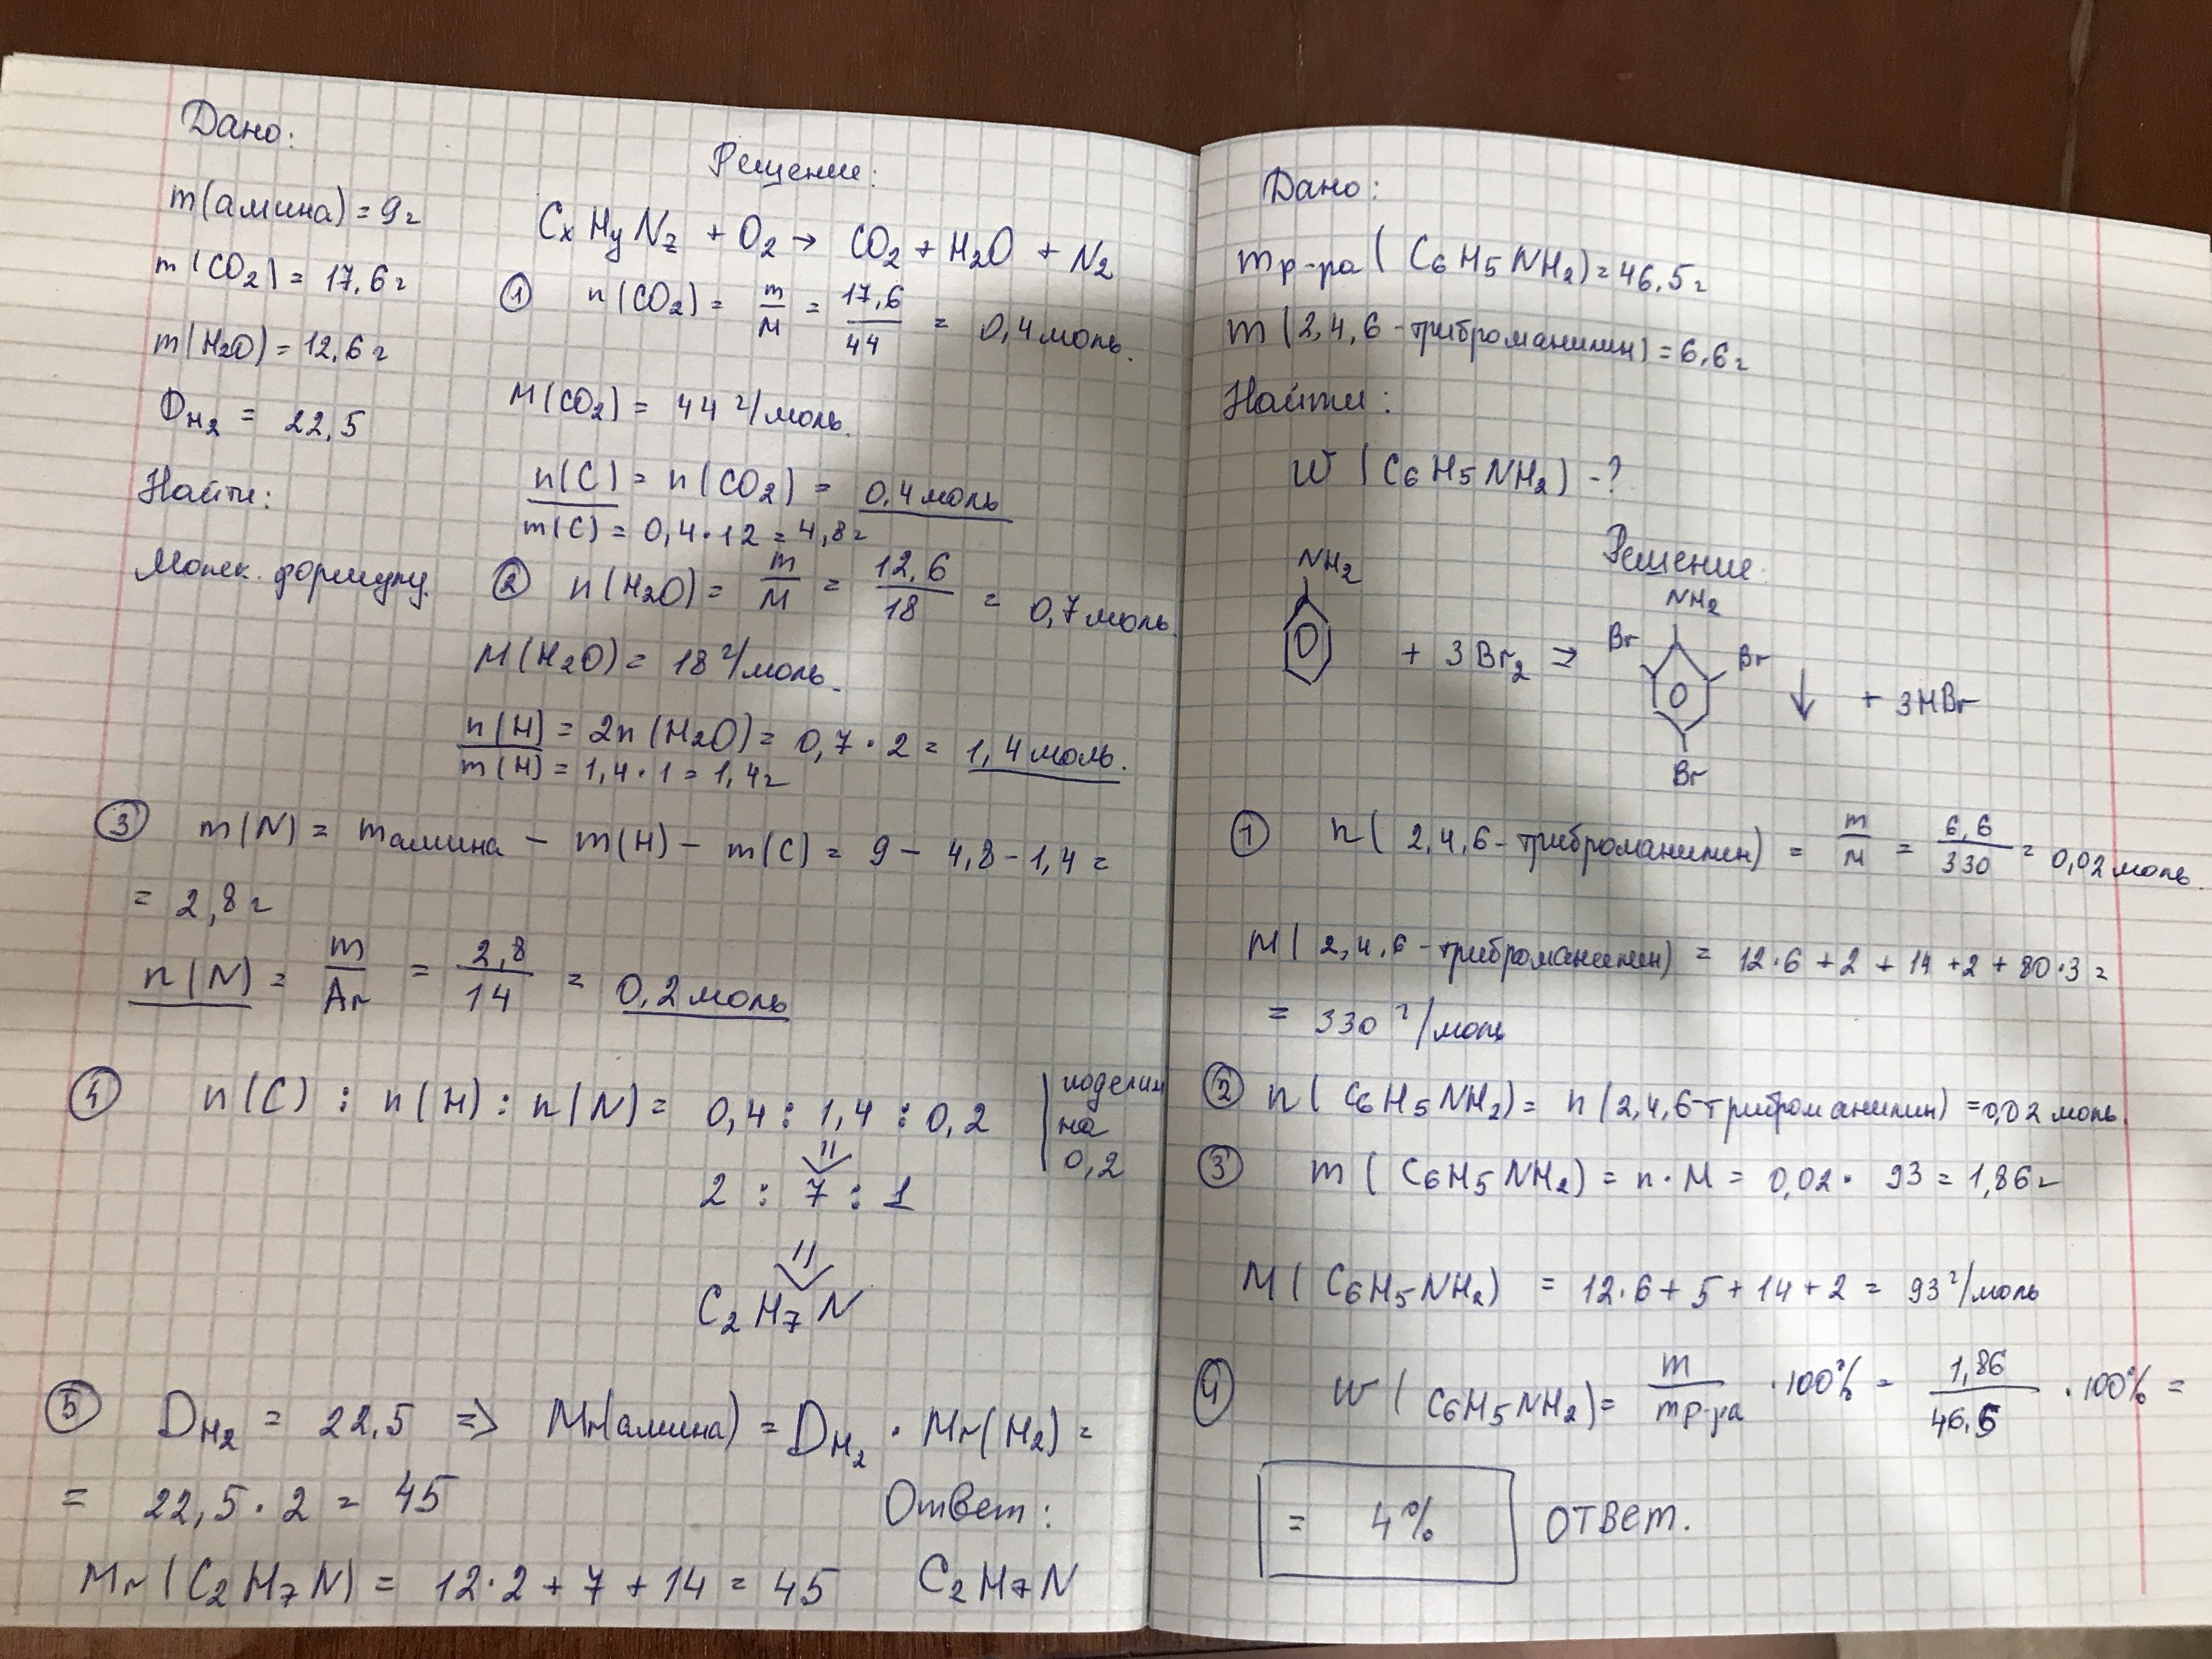 Дано:
Решение:
m(амина) = 9г
CxHyNz + O2 → CO2 + H2O + N2
m(CO2) = 17,6г
① n(CO2) = m/M = 17,6/44 = 0,4 моль.
m(H2O) = 12,6г
M(CO2) = 44 г/моль.
DH2 = 22,5
n(C) = n(CO2) = 0,4 моль
m(C) = 0,4·12 = 4,8г
Найти:
Молек. формулу.
② n(H2O) = m/M = 12,6/18 = 0,7 моль.
M(H2O) = 18 г/моль.
n(H) = 2n(H2O) = 0,7·2 = 1,4 моль.
m(H) = 1,4·1 = 1,4г
③ m(N) = mамина − m(H) − m(C) = 9 − 4,8 − 1,4 =
= 2,8г
n(N) = m/Ar = 2,8/14 = 0,2 моль
④ n(C) : n(H) : n(N) = 0,4 : 1,4 : 0,2 | поделим
на
0,2
2 : 7 : 1
C2H7N
⑤ DH2 = 22,5 => Mr(амина) = DH2 · Mr(H2) =
= 22,5·2 = 45
Ответ:
Mr(C2H7N) = 12·2 + 7 + 14 = 45
C2H7N
Дано:
mр-ра (C6H5NH2) = 46,5г
m (2,4,6-триброманилин) = 6,6г
Найти:
W (C6H5NH2) - ?
Решение:
NH2
NH2
Br
Br
+ 3Br2 →
↓ + 3HBr
Br
① n(2,4,6-триброманилин) = m/M = 6,6/330 = 0,02 моль.
M(2,4,6-триброманилин) = 12·6 + 2 + 14 + 2 + 80·3 =
= 330 г/моль
② n(C6H5NH2) = n(2,4,6-триброманилин) = 0,02 моль.
③ m(C6H5NH2) = n·M = 0,02·93 = 1,86г
M(C6H5NH2) = 12·6 + 5 + 14 + 2 = 93 г/моль
④ W(C6H5NH2) = m/mр-ра ·100% = 1,86/46,5 ·100% =
= 4% ОТВЕТ.